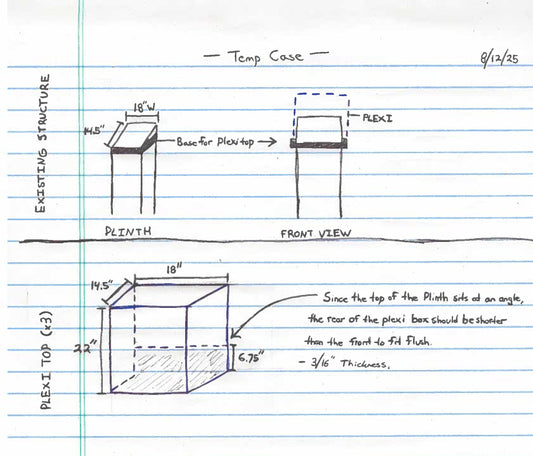 — Temp Case —
8/12/25
EXISTING STRUCTURE
18"W
14.5"
Base for Plexi top →
PLEXI
PLINTH
FRONT VIEW
PLEXI TOP (x3)
18"
14.5"
22"
6.75"
Since the top of the Plinth sits at an angle,
the rear of the plexi box should be shorter
than the front to fit flush.
- 3/16" Thickness.